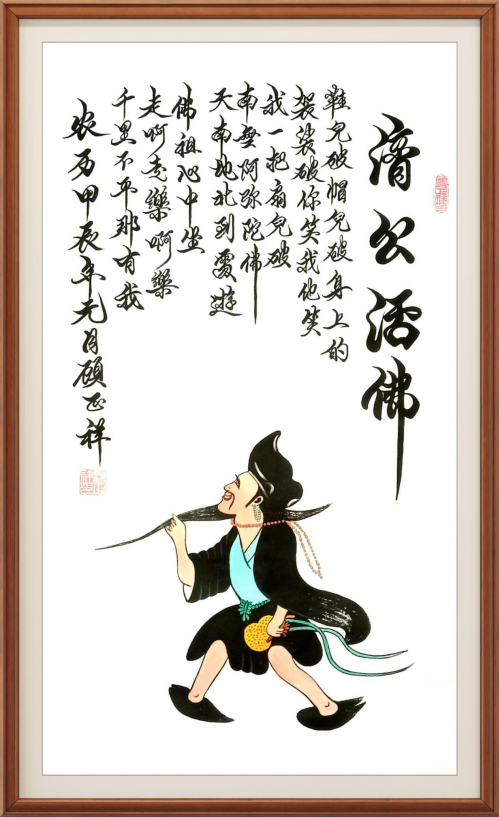 濟公活佛
鞋兒破帽兒破身上的
袈裟破你笑我他笑
我一把扇兒破
南無阿弥陀佛
天南地北到處遊
佛祖心中坐
走啊走樂啊樂
千里不平那有我
农历甲辰年元月顾正祥